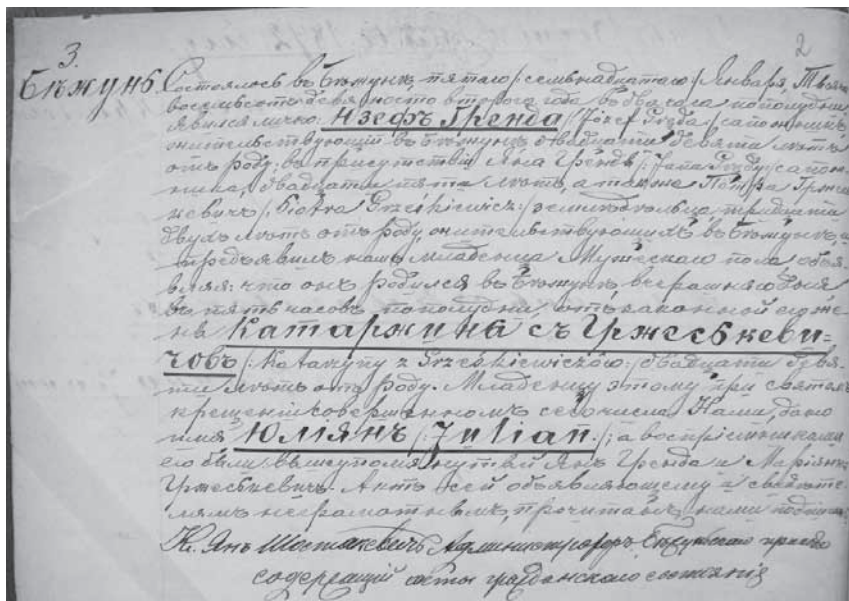 3.
2
Бѣжунь
Состоялось въ Бѣжунѣ, пятаго /:семьнадцатаго:/ Января, Тысяча
восемьсотъ девяносто второго года въ два часа пополудни
Явился лично: Юзефъ Гренда /:Józef Gręda:/ сапожникъ
жительствующій въ Бѣжунѣ двадцати девяти лѣтъ
отъ роду; въ присутствіи Яна Гренды /:Jana Grędy:/ сапож-
ника, двадцати пяти лѣтъ, а также Петра Гржесь-
кевичъ /:Piotra Grześkiewicz:/ земледѣльца тридцати
двухъ лѣтъ отъ роду, жительствующихъ въ Бѣжунѣ, и
предъявилъ намъ младенца Мужескаго пола объя-
вляя: что онъ родился въ Бѣжунѣ вчерашняго дня
въ пять часовъ пополудни, отъ законной его же-
ны Катаржины съ Гржеськеви=
човъ /:Katarzyny z Grześkiewiczów:/ двадцати девя-
ти лѣтъ отъ роду. Младенцу этому при святомъ
крещеніи совершенномъ сегочисла Нами, дано
имя Юліянъ /:Julian:/; а воспріемниками
его были вышеупомянутый Янъ Гренда и Маріянна
Гржеськевичъ. Актъ сей объявляющему и свидѣте-
лямъ неграмотнымъ, прочитанъ, нами подписанъ
Кс. Янъ Администраторъ Бѣжунскаго прихода
содержащій акты гражданскаго состоянія